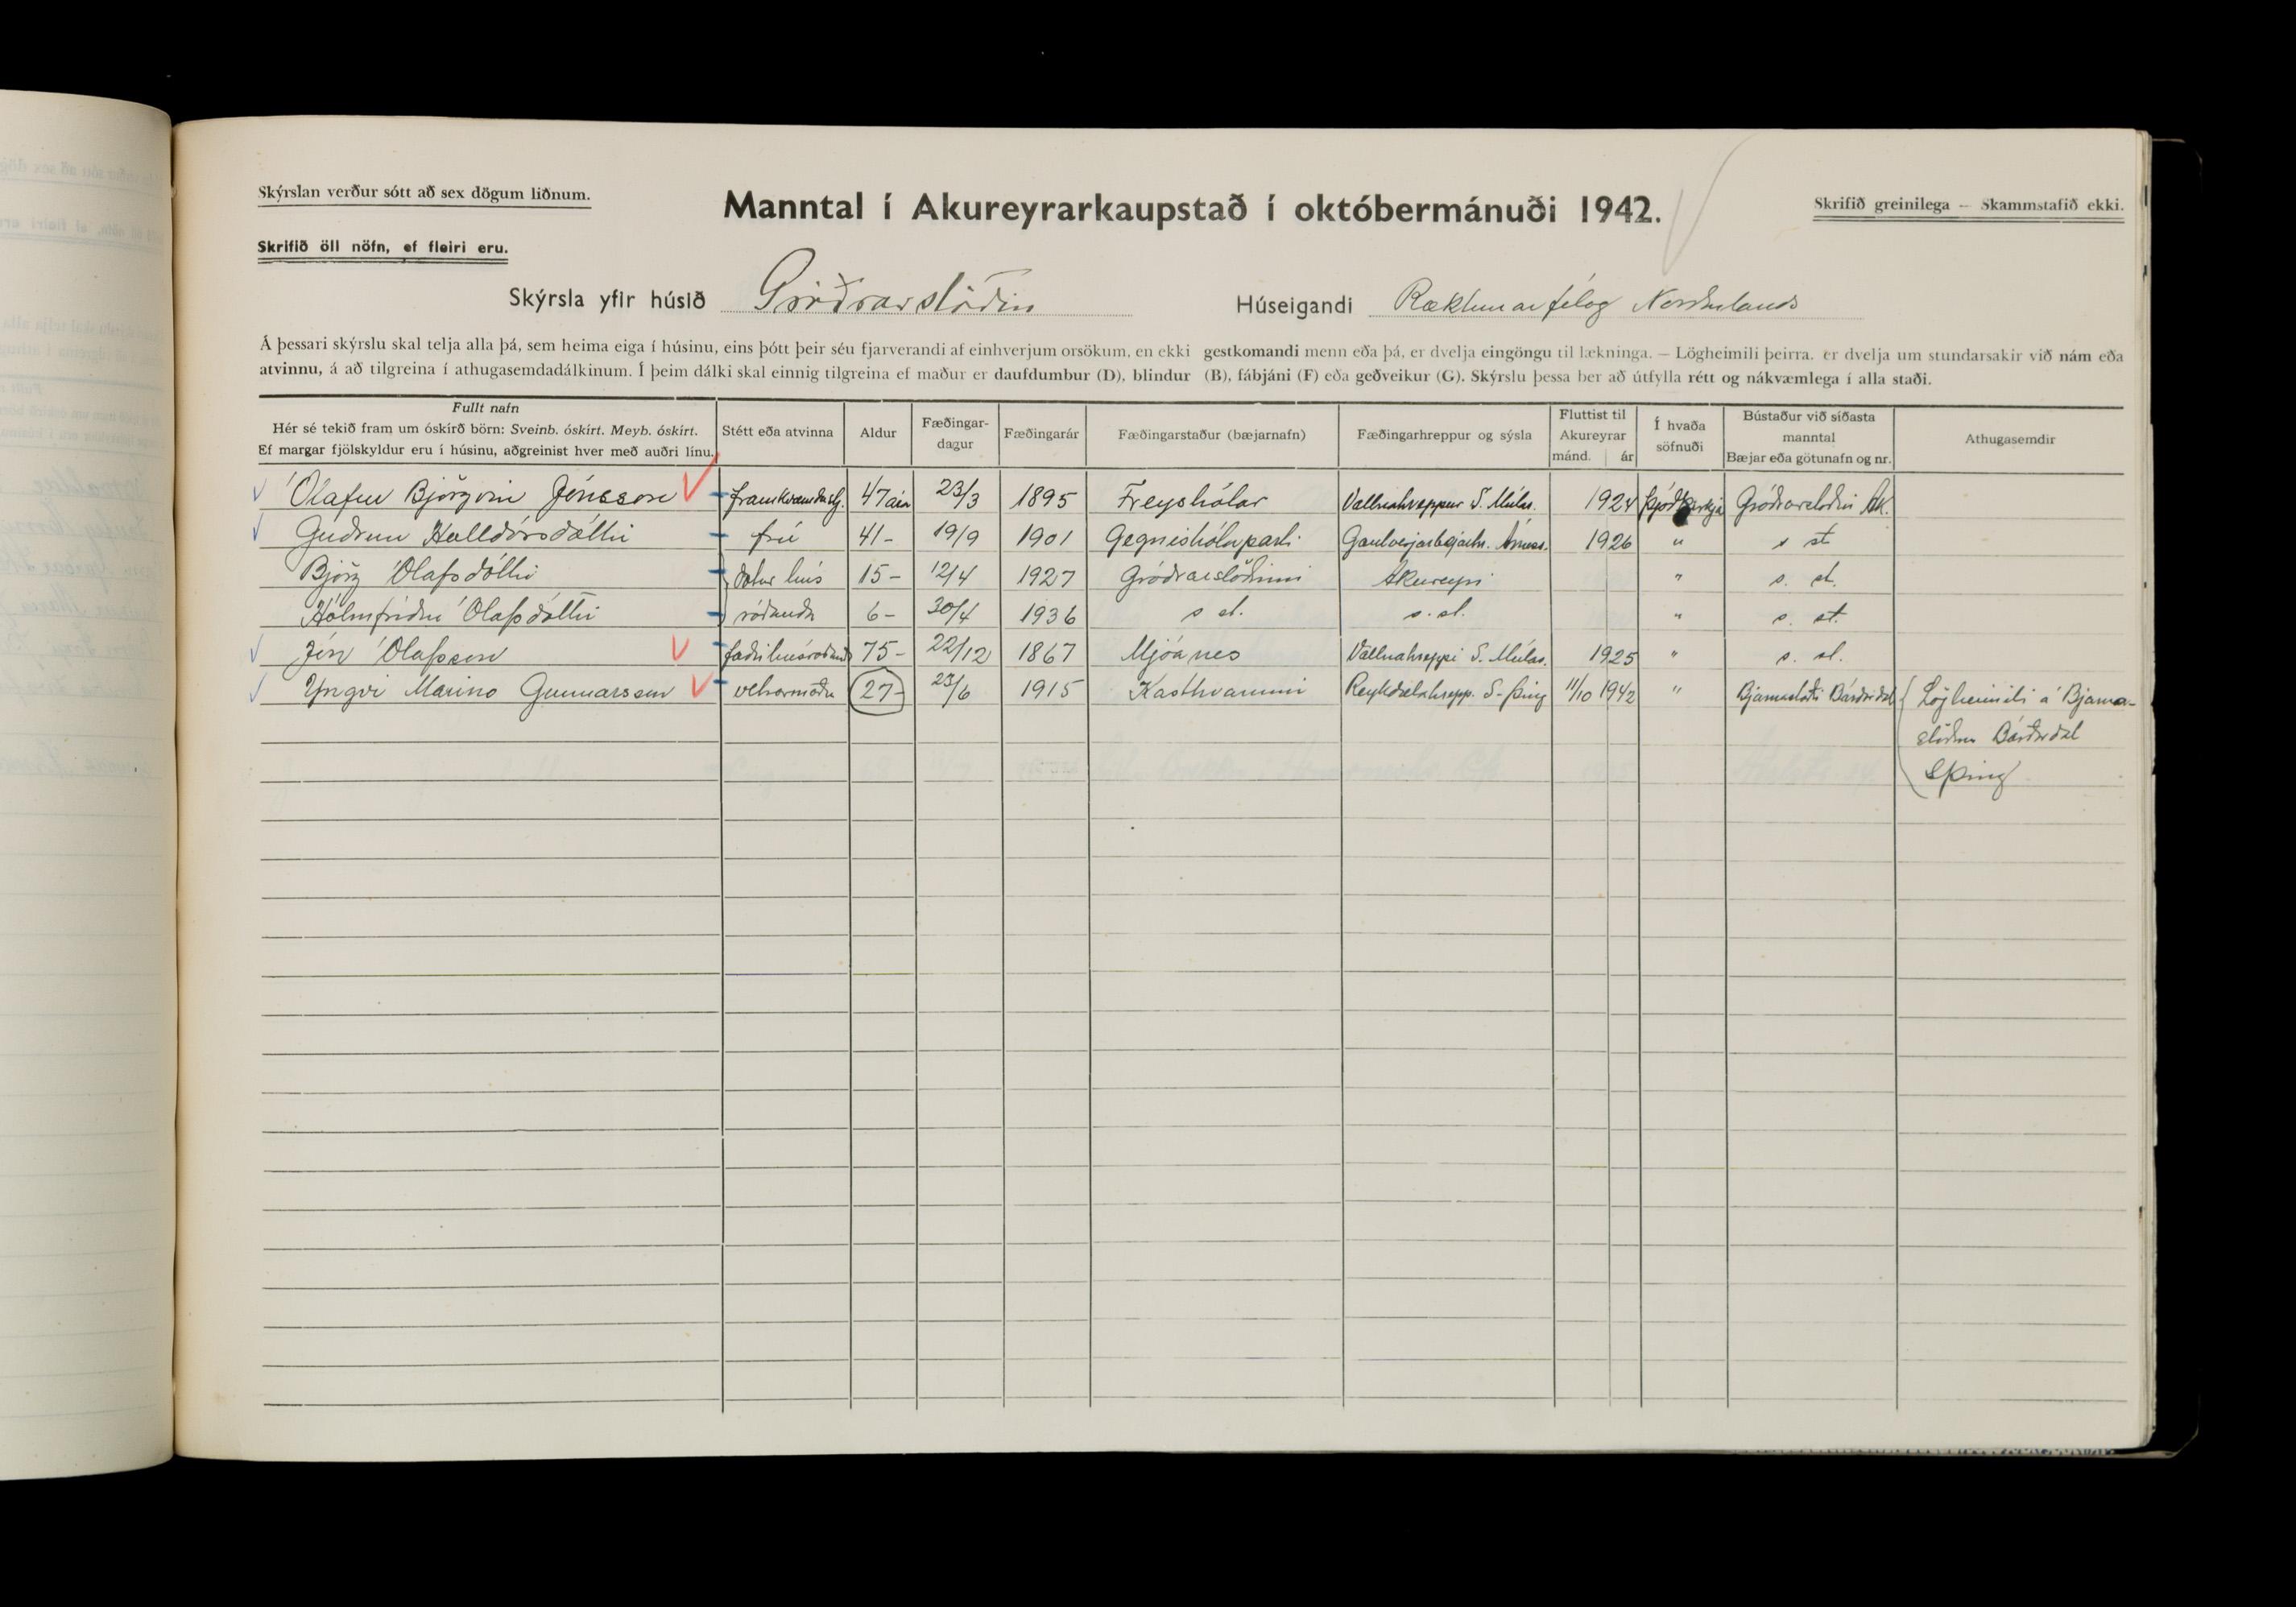 Skýrslan verður sótt að sex dögum liðnum.
Manntal í Akureyrarkaupstað í októbermánuði 1942.
Skrifið greinilega – Skammstafið ekki.
Skrifið öll nöfn, ef fleiri eru.
Skýrsla yfir húsið Gróðrarstöðin Húseigandi Ræktunarfélag Norðurlands
Á þessari skýrslu skal telja alla þá, sem heima eiga í húsinu, eins þótt þeir séu fjarverandi af einhverjum orsökum, en ekki gestkomandi menn eða þá, er dvelja eingöngu til lækninga. – Lögheimili þeirra, er dvelja um stundarsakir við nám eða
atvinnu, á að tilgreina í athugasemdadálkinum. Í þeim dálki skal einnig tilgreina ef maður er daufdumbur (D), blindur (B), fábjáni (F) eða geðveikur (G). Skýrslu þessa ber að útfylla rétt og nákvæmlega í alla staði.
Fullt nafn
Hér sé tekið fram um óskírð börn: Sveinb. óskírt. Meyb. óskírt.
Ef margar fjölskyldur eru í húsinu, aðgreinist hver með auðri línu.
Stétt eða atvinna
Aldur
Fæðingar-
dagur
Fæðingarár
Fæðingarstaður (bæjarnafn)
Fæðingarhreppur og sýsla
Fluttist til
Akureyrar
mánd. ár
Í hvaða
söfnuði
Bústaður við síðasta
manntal
Bæjar eða götunafn og nr.
Athugasemdir
Ólafur Björgvin Jónsson framkvæmdastj. 47 ára 23/3 1895 Freyshólar Vallnahreppur S. Múlas. 1924 Þjóðkirkja Gróðrarstöðin Ak.
Guðrun Halldórsdóttir frú 41- 19/9 1901 Gegnishólaparti Gaulverjarbæjarhr. Árness. 1926 " s st
Björg Ólafsdóttir dætur hús 15- 12/4 1927 Gróðrarstöðinni Akureyri " s. st.
Hólmfríður Ólafsdóttir ráðanda 6- 30/4 1936 s st. s. st. " s. st.
Jón Ólafsson faðir húsráðanda 75- 22/12 1867 Mjóanes Vallnahreppi S. Múlas. 1925 " s. st.
Yngvi Marino Gunnarsson 27- 23/6 1915 Kasthvammi Reykdælahrepp. S-Þing 11/10 1942 " Bjarnastöðum Bárðardal Lögheimili á Bjarna-
stöðum Bárðardal
S Þing